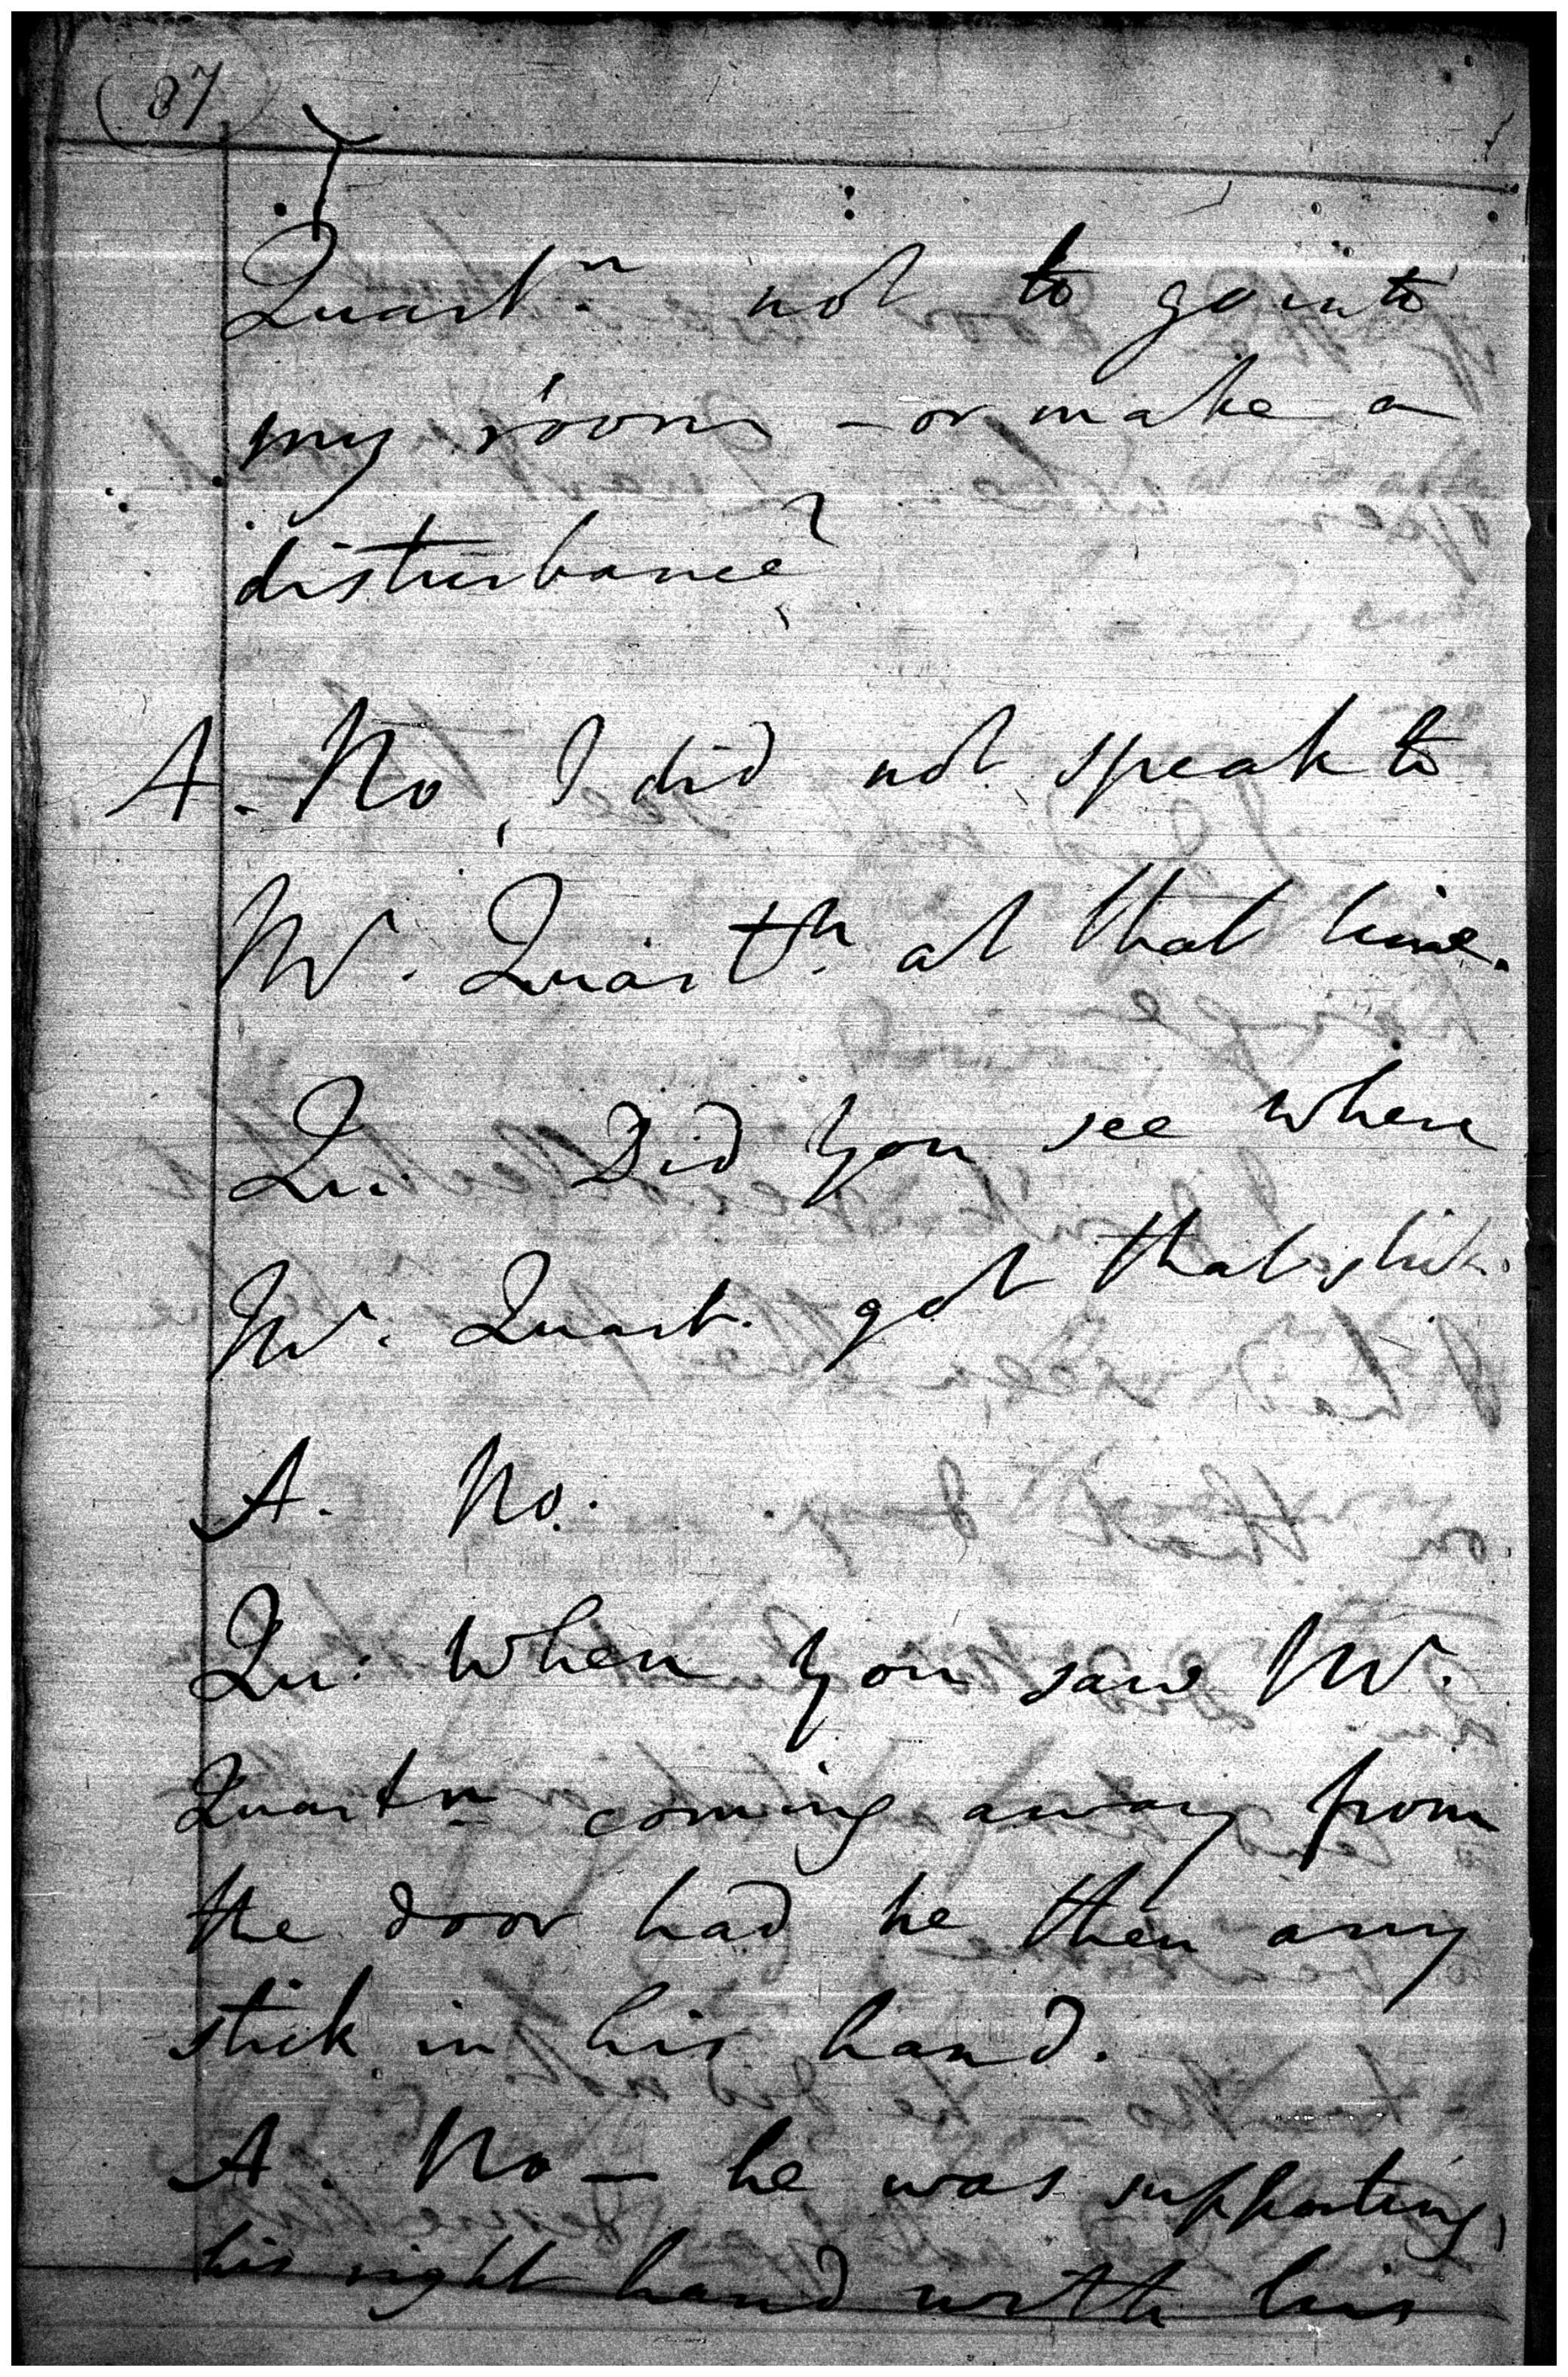 87
Quartn. not to go into
my room - or make a
disturbance?
A. No, I did not speak to
Mr. Quartn. at that time.
Qu. Did you see where
Mr. Quart. got that stick.
A. No.
Qu: When you saw Mr.
Quartn coming away from
the door had he then any
stick in his hand.
A. No - he was supporting
his right hand with his